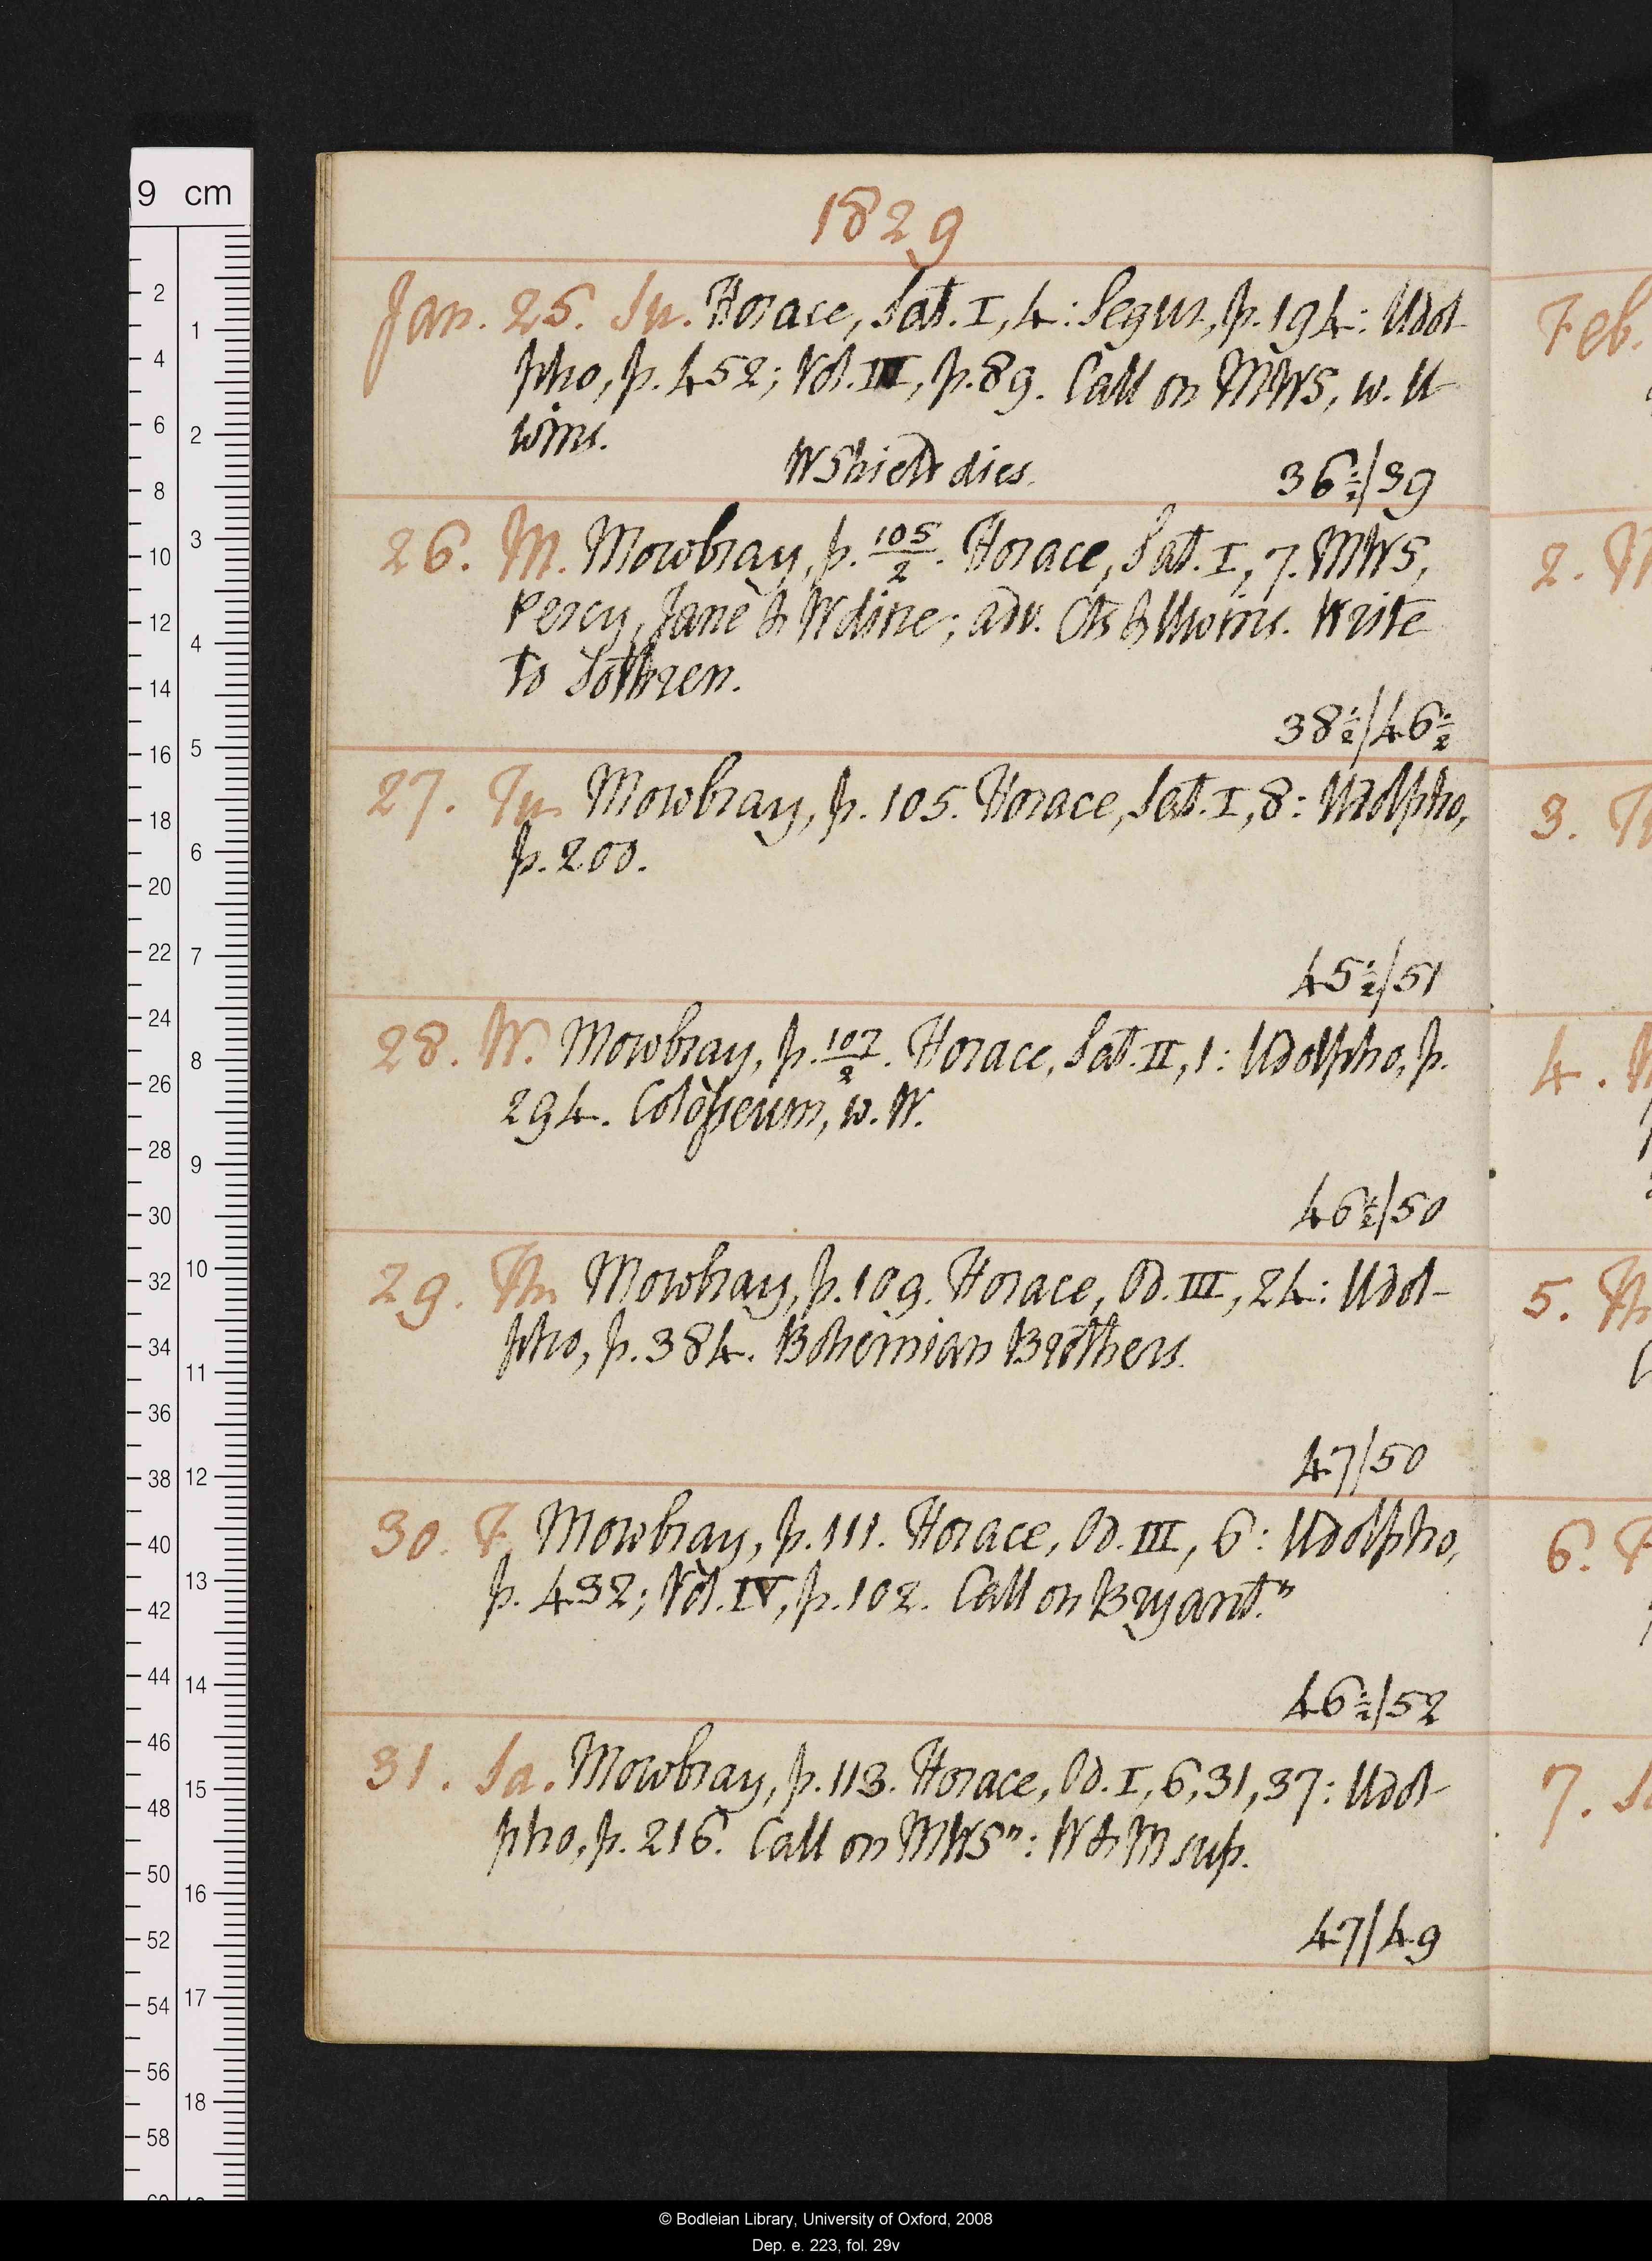 1829
Jan. 25. Su. Horace, Sat. I, 4: Segur, p. 194: Udol-
pho, p. 452; Vol. III, p. 89. Call on MWS, w. U-
wins.
W Shield dies.
36½/39
26. M. Mowbray, p. 105/2. Horace, Sat. I, 7. MWS,
Percy, Jane & Wdine; adv. Cts & Uwins. Write
to Lothren.
38½/46½
27. Tu. Mowbray, p. 105. Horace, Sat. I, 8: Udolpho,
p. 200.
45½/51
28. W. Mowbray, p. 107/2. Horace, Sat. II, 1: Udolpho, p.
294. Colosseum, w. W.
46½/50
29. Th. Mowbray, p. 109. Horace, Od. III, 24: Udol-
pho, p. 384. Bohemian Brothers.
47/50
30. F. Mowbray, p. 111. Horace, Od. III, 6: Udolpho,
p. 432; Vol. IV, p. 102. Call on Bryant.n
46½/52
31. Sa. Mowbray, p. 113. Horace, Od. I, 6, 31, 37: Udol-
pho, p. 216. Call on MWSn: W & M sup.
47/49
Feb.
2.
3.
4.
5. Th
6. F
7. Sa
9 cm
2
4
6
8
10
12
14
16
18
20
22
24
26
28
30
32
34
36
38
40
42
44
46
48
50
52
54
56
58
1
2
3
4
5
6
7
8
9
10
11
12
13
14
15
16
17
18
© Bodleian Library, University of Oxford, 2008
Dep. e. 223, fol. 29v